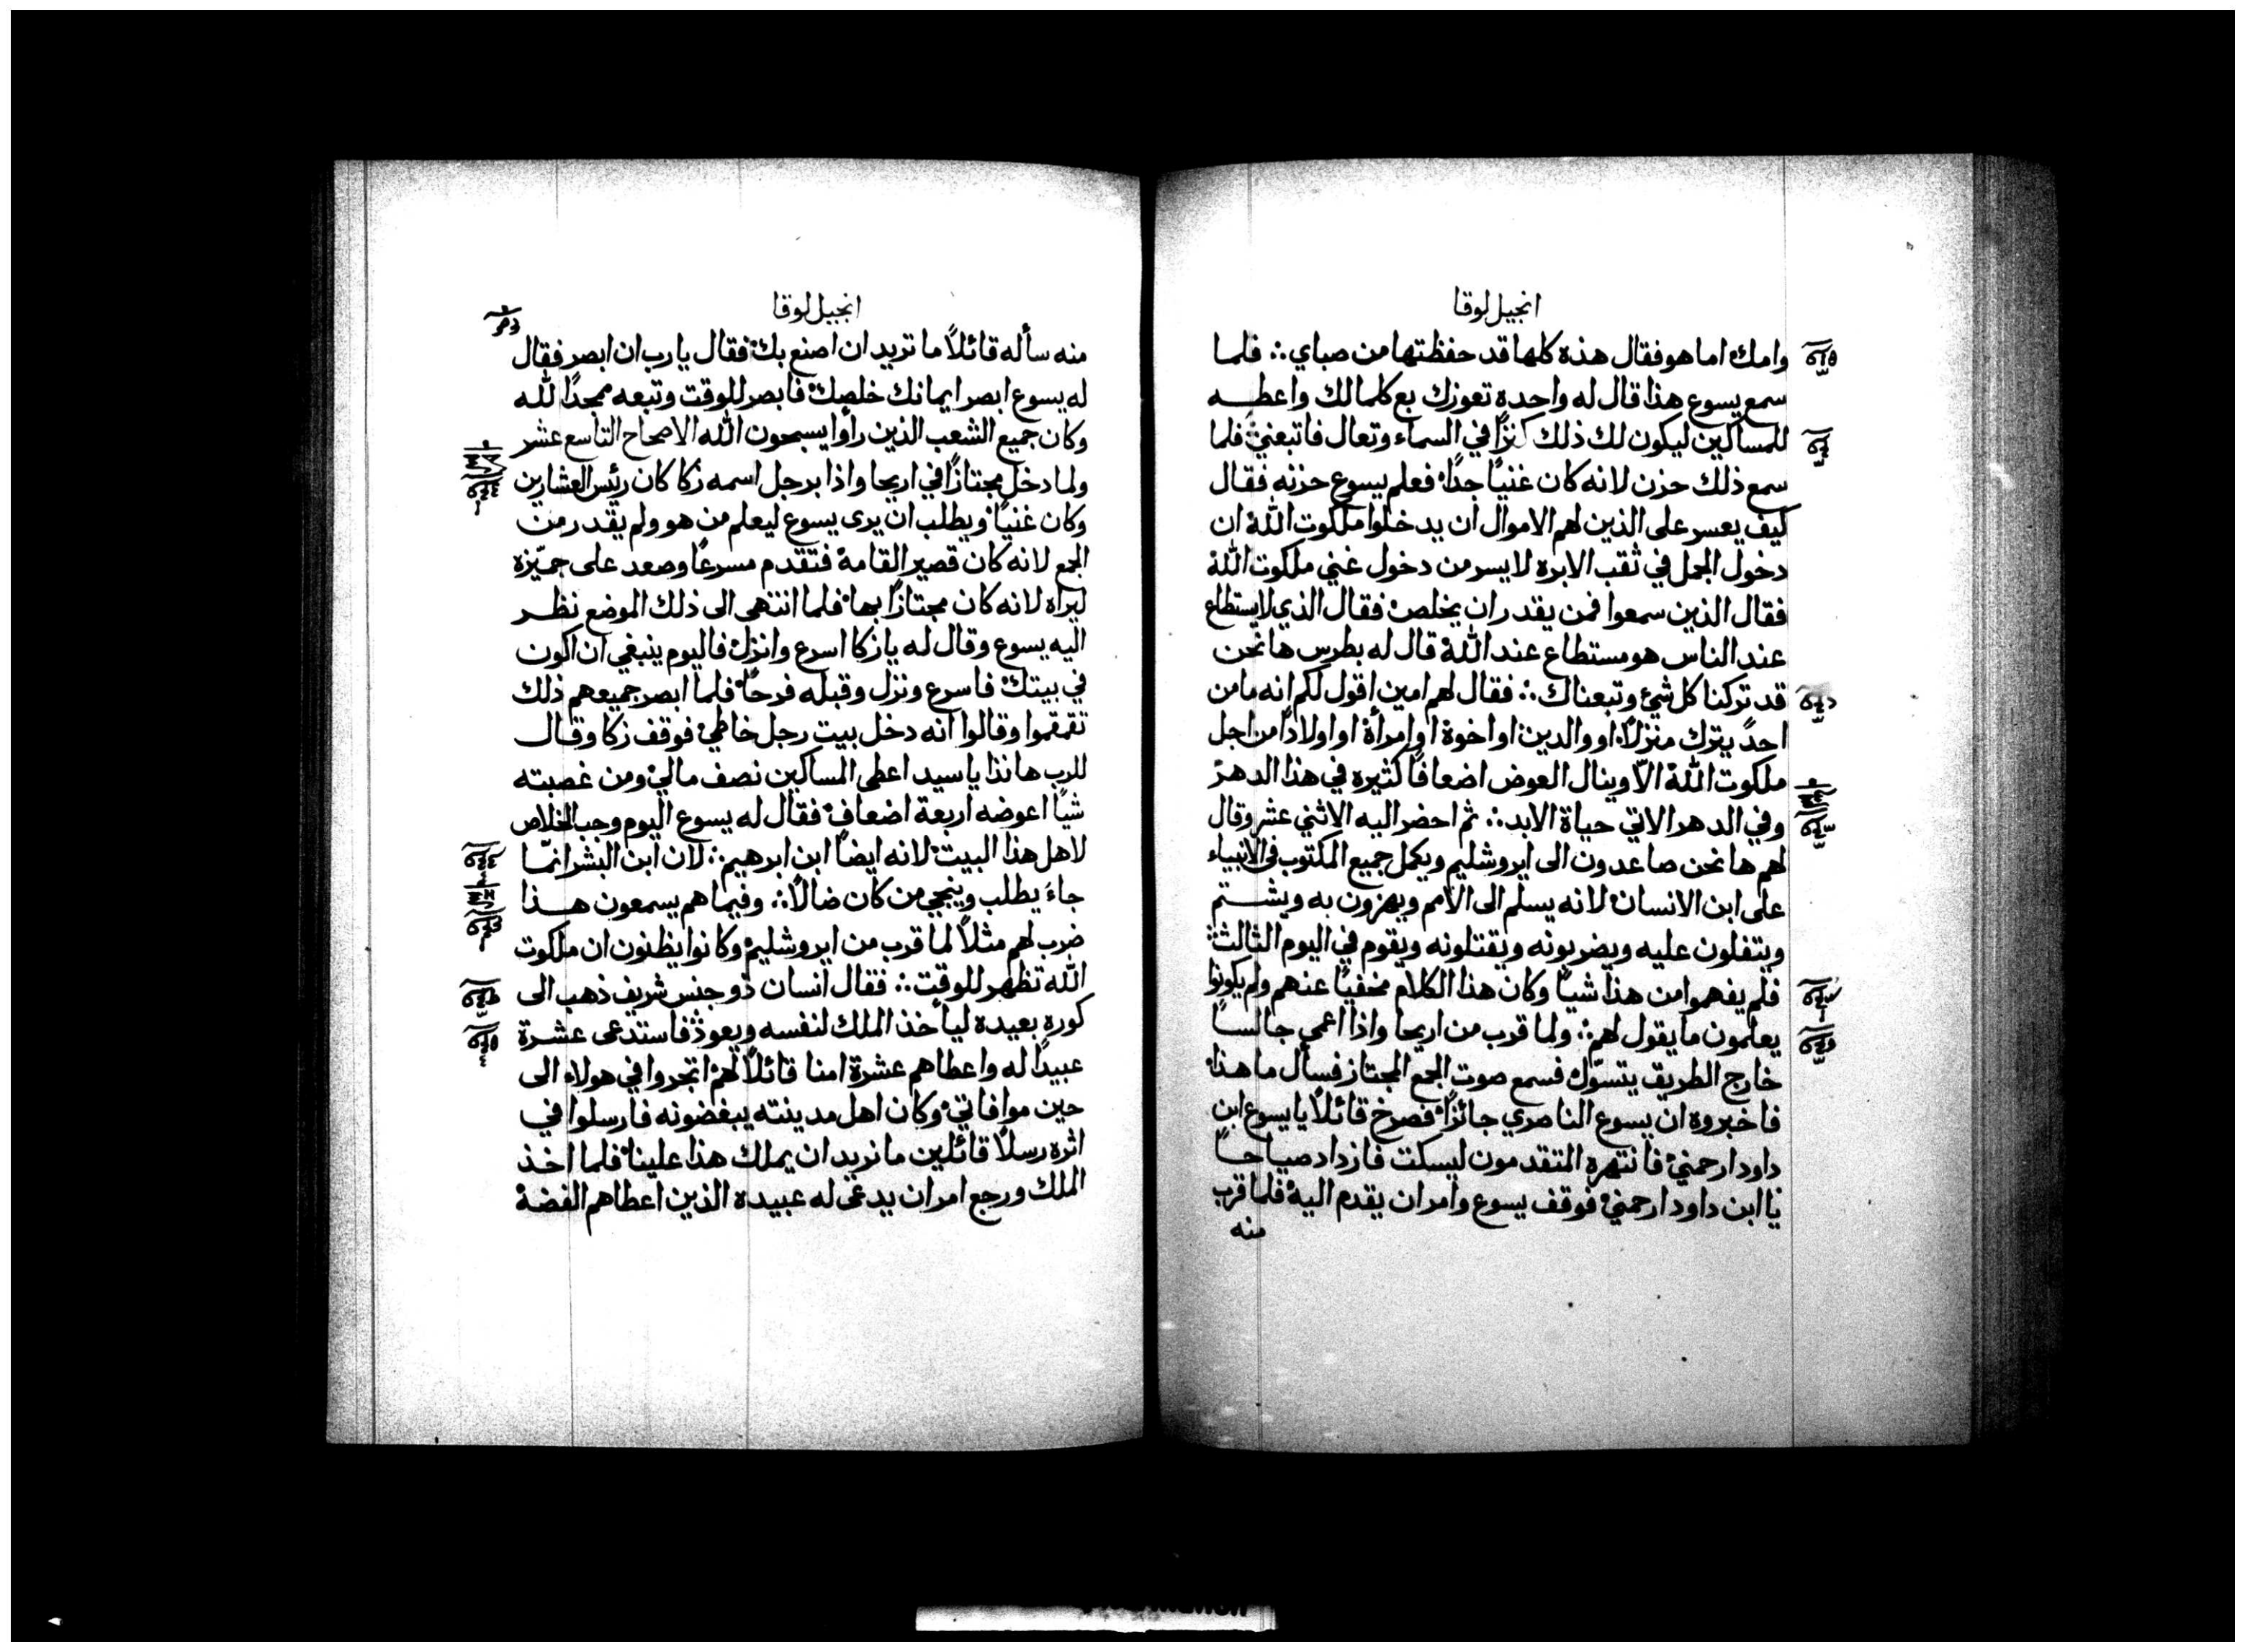 انجيل لوقا
وامك اما هو فقال هذه كلها قد حفظتها من صباي ∴ فلما
سمع يسوع هذا قال له واحدة تعوزك بع كلما لك واعطه
للمساكين ليكون لك ذلك كنزًا في السماء وتعال فاتبعني فلما
سمع ذلك حزن لانه كان غنيًا جدًا فعلم يسوع حزنه فقال
كيف يعسر على الذين لهم الاموال ان يدخلوا ملكوت الله ان
دخول الجمل في ثقب الابره لايسر من دخول غني ملكوت الله
فقال الذين سمعوا فمن يقدر ان يخلص فقال الذي لا يستطاع
عند الناس هو مستطاع عند الله قال له بطرس ها نحن
قد تركنا كل شيء وتبعناك ∴ فقال لهم امين اقول لكم انه ما من
احدٍ يترك منزلاً او والدين او اخوة او امرأة او اولادًا من اجل
ملكوت الله الاّ وينال العوض اضعافًا كثيره في هذا الدهر
وفي الدهر الاتي حياة الابد ∴ ثم احضر اليه الاثني عشر وقال
لهم ها نحن صاعدون الى ايروشليم ويكمل جميع المكتوب في الانبياء
على ابن الانسان لانه يسلم الى الامم ويهزون به ويشتم
ويتفلون عليه ويضربونه ويقتلونه ويقوم في اليوم الثالث
فلم يفهموا من هذا شيًا وكان هذا الكلام مخفيًا عنهم ولم يكونوا
يعلمون ما يقول لهم ∴ ولما قرب من اريحا واذا اعمي جالسًا
خارج الطريق يتسوّل فسمع صوت الجمع المجتاز فسأل ما هذا
فاخبروه ان يسوع الناصري جائزًا فصرخ قائلاً يا يسوع ابن
داود ارحمني فانتهره المتقدمون ليسكت فازداد صياحًا
يا ابن داود ارحمني فوقف يسوع وامر ان يقدم اليه فلما قرب
منه
انجيل لوقا
منه سأله قائلاً ما تريد ان اصنع بك فقال يا رب ان ابصر فقال
له يسوع ابصر ايمانك خلصك فابصر للوقت وتبعه ممجدًا لله
وكان جميع الشعب الذين رأوا يسبحون الله الاصحاح التاسع عشر
ولما دخل مجتازًا في اريحا واذا برجل اسمه زكا كان رئيس العشارين
وكان غنيًا ويطلب ان يرى يسوع ليعلم من هو ولم يقدر من
الجمع لانه كان قصير القامة فتقدم مسرعًا وصعد على جميّزة
ليراه لانه كان مجتازًا بها فلما انتهى الى ذلك الموضع نظر
اليه يسوع وقال له يا زكا اسرع وانزل فاليوم ينبغي ان اكون
في بيتك فاسرع ونزل وقبله فرحًا فلما ابصر جميعهم ذلك
تقمقموا وقالوا انه دخل بيت رجل خاطي فوقف زكا وقال
للرب هانذا يا سيد اعطى المساكين نصف مالي ومن غصبته
شيًا اعوضه اربعة اضعاف فقال له يسوع اليوم وجب الخلاص
لاهل هذا البيت لانه ايضًا ابن ابرهيم ∴ لان ابن البشر انمّا
جاءَ يطلب وينجي من كان ضالاً ∴ وفيما هم يسمعون هذا
ضرب لهم مثلاً لما قرب من ايروشليم وكانوا يظنون ان ملكوت
الله تظهر للوقت ∴ فقال انسان ذو جنس شريف ذهب الى
كورة بعيده ليأخذ الملك لنفسه ويعود فاستدعى عشرة
عبيدًا له واعطاهم عشرة امنا قائلاً لهم اتجروا في هولاء الى
حين موافاتي وكان اهل مدينته يبغضونه فارسلوا في
اثره رسلاً قائلين ما نريد ان يملك هذا علينا فلما اخذ
الملك ورجع امر ان يدعى له عبيده الذين اعطاهم الفضة